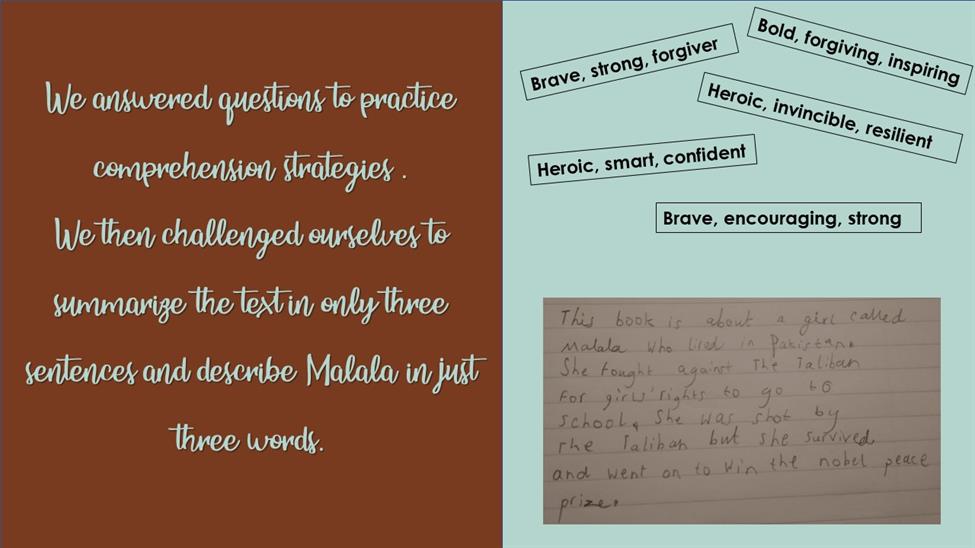 We answered questions to practice
comprehension strategies .
We then challenged ourselves to
summarize the text in only three
sentences and describe Malala in just
three words.
Brave, strong, forgiver
Bold, forgiving, inspiring
Heroic, invincible, resilient
Heroic, smart, confident
Brave, encouraging, strong
This book is about a girl called
Malala who lied in Pakistan.
She fought against The Taliban
For girls' rights to go to
school. She was shot by
the Taliban but she survived
and went on to win the nobel peace
prize.